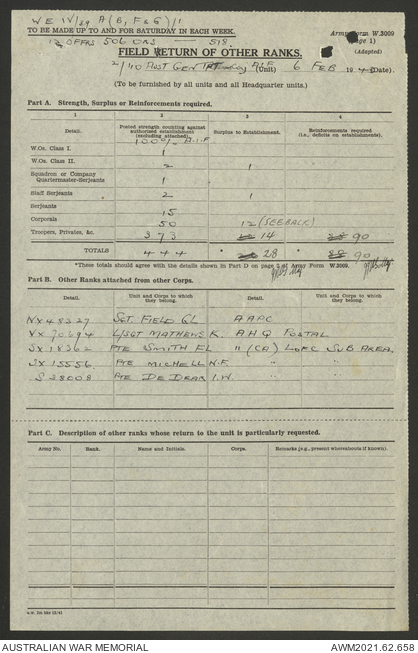 WE IV/89 A (B, F & G)/1
TO BE MADE UP TO AND FOR SATURDAY IN EACH WEEK.
12 OFFRS 506 ORS — 518.
Army Form W.3009
(Page 1)
(Adapted)
FIELD RETURN OF OTHER RANKS.
2/110 Aust Gen A.I.F (Unit) 6 FEB 194 (Date).
(To be furnished by all units and all Headquarter units.)
Part A. Strength, Surplus or Reinforcements required.
1 2 3 4
Detail. Posted strength counting against authorised establishment (excluding attached). Surplus to Establishment. Reinforcements required (i.e., deficits on establishment).
100% A.I.F
W.Os. Class I. 1
W.Os. Class II. 2 1
Squadron or Company Quartermaster-Serjeants 1
Staff Serjeants 2 1
Serjeants 15
Corporals 50 12 (SEE BACK)
Troopers, Privates, &c. 373 14 90
TOTALS 444 * 28 * 90
*These totals should agree with the details shown in Part D on page 2 of Army Form W.3009.
Part B. Other Ranks attached from other Corps.
Detail. Unit and Corps to which they belong. Detail. Unit and Corps to which they belong.
NX 48327 SGT. FIELD GL AAPC
VX 70694 L/SGT MATHEWS K. AHQ POSTAL
SX 18362 PTE SMITH FL " (CA) L OF C SUB AREA.
SX 15556. PTE MICHELL N.F " "
S 28008 PTE DE DEAR I.W. " "
Part C. Description of other ranks whose return to the unit is particularly requested.
Army No. Rank. Name and Initials. Corps. Remarks (e.g., present whereabouts if known).
AUSTRALIAN WAR MEMORIAL
AWM2021.62.658